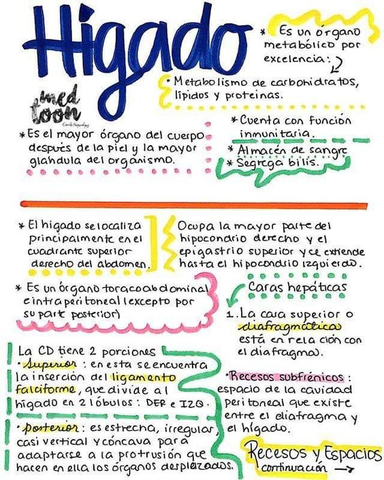 Hígado
* Es un órgano
metabólico por
excelencia:
• Metabolismo de carbohidratos,
lípidos y proteínas.
med
toon
* Es el mayor órgano del cuerpo
después de la piel y la mayor
glándula del organismo.
* Cuenta con función
inmunitaria.
* Almacén de sangre
* Segrega bilis.
* El hígado se localiza
principalmente en el
cuadrante superior
derecho del abdomen.
Ocupa la mayor parte del
hipocondrio derecho y el
epigastrio superior y se extiende
hasta el hipocondrio izquierdo.
* Es un órgano toracoabdominal
e intraperitoneal (excepto por
su parte posterior)
Caras hepáticas
1. La cara superior o
diafragmática
está en relación con
el diafragma.
La CD tiene 2 porciones
• Superior: en esta se encuentra
la inserción del ligamento
falciforme, que divide al
hígado en 2 lóbulos: DER e IZQ.
• Posterior: es estrecha, irregular,
casi vertical y cóncava para
adaptarse a la protrusión que
hacen en ella los órganos desplazados.
• Recesos subfrénicos:
espacio de la cavidad
peritoneal que existe
entre el diafragma y
el hígado.
Recesos y Espacios
continuación →